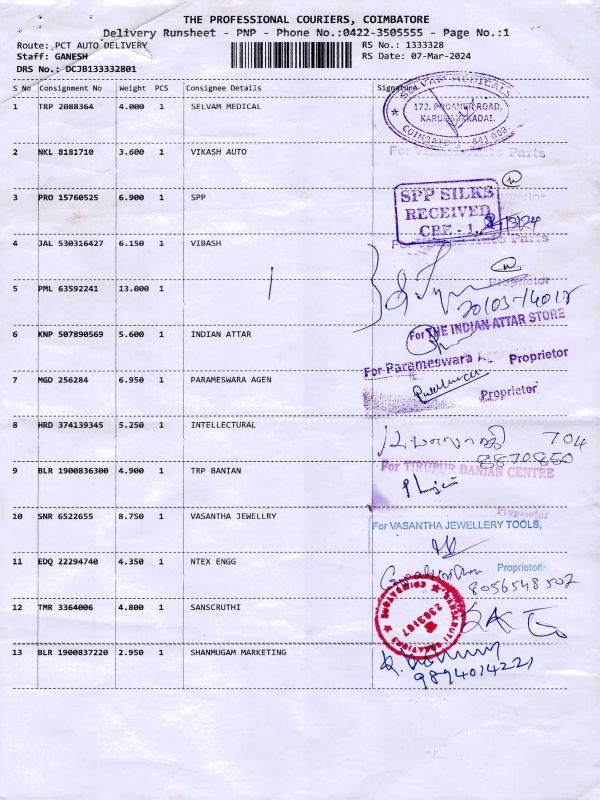 THE PROFESSIONAL COURIERS, COIMBATORE
Delivery Runsheet - PNP - Phone No.:0422-3505555 - Page No.:1
Route: PCT AUTO DELIVERY RS No.: 1333328
Staff: GANESH RS Date: 07-Mar-2024
DRS No.: DCJB133332801
S No Consignment No Weight PCS Consignee Details Signature
1 TRP 2088364 4.000 1 SELVAM MEDICAL
SELVAM MEDICALS
172, PODANUR ROAD,
KARUMBUKKADAI,
COIMBATORE - 641 008
2 NKL 8181710 3.600 1 VIKASH AUTO
Auto Parts
Proprietor
3 PRO 15760525 6.900 1 SPP
SPP SILKS
RECEIVED
CBE - 1.
4 JAL 530316427 6.150 1 VIBASH
Auto Parts
Proprietor
5 PML 63592241 13.000 1
6 KNP 507890569 5.600 1 INDIAN ATTAR
For THE INDIAN ATTAR STORE
Proprietor
7 MGD 256284 6.950 1 PARAMESWARA AGEN
For Parameswara
Proprietor
8 HRD 374139345 5.250 1 INTELLECTURAL
704
8870850
9 BLR 1900836300 4.900 1 TRP BANIAN
For TIRUPUR BANIAN CENTRE
Proprietor
10 SNR 6522655 8.750 1 VASANTHA JEWELLRY
For VASANTHA JEWELLERY TOOLS,
Proprietor
11 EDQ 22294740 4.350 1 NTEX ENGG
8056548502
12 TMR 3364006 4.800 1 SANSCRUTHI
COIMBATORE
13 BLR 1900837220 2.950 1 SHANMUGAM MARKETING
9894014221